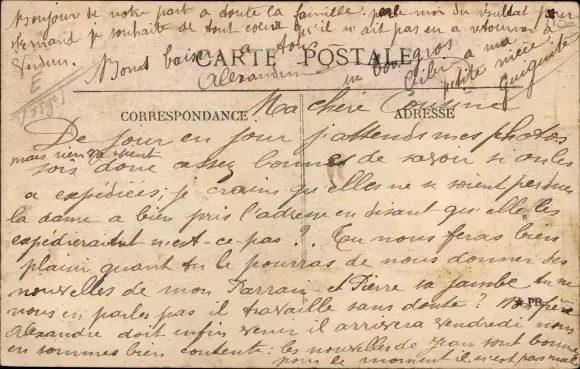 Bonjour de notre part a toute la famille; parle moi du résultat pour
Fernand je souhaite de tout coeur qu'il n'ait pas eu a retourner à
Verdun.
Bons baisers a tous
Alexandrine
un bon gros
a ma
petite nièce
Guiguite
CARTE POSTALE
CORRESPONDANCE
ADRESSE
Ma chère Cousine
De jour en jour j'attends mes photos
mais rien ne vient
sois donc assez bonne de savoir si on les
a expédiées; je crains qu'elles ne se soient perdues
la dame a bien pris l'adresse en disant qu'elle les
expédieraient n'est-ce-pas? Tu nous feras bien
plaisir quant tu le pourras de nous donner des
nouvelles de mon Parrain et Pierre sa jambe tu ne
nous en parles pas il travaille sans doute? frère
Alexandre doit enfin venir il arrivera vendredi nous
en sommes bien contente; les nouvelles de Jean sont bonnes
pour le moment il n'est pas mal
PB